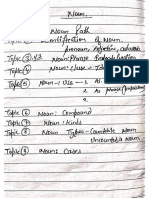 Noun
Noun Path
Topic ① Identification of Noun,
Pronoun Adjective, adverb
Topic ② Noun: Phrase Identification
Topic ④ Noun: Clause
Topic ⑤ Noun: Use
Topic ⑥ Noun: Compound
Topic ⑦ Noun: Kinds
Topic ⑧ Noun Types - Countable Noun,
Uncountable Noun
Topic ⑨ Noun: Cases